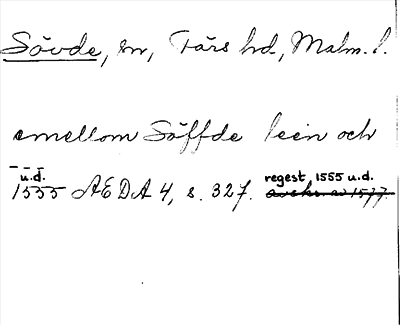 Sövde, sn, Färs hd, Malm. l.
emellom Söffde leen och
— — —
u.d. regest, 1555 u.d.
1555 AEDA 4, s. 327. avskr. av 1577.